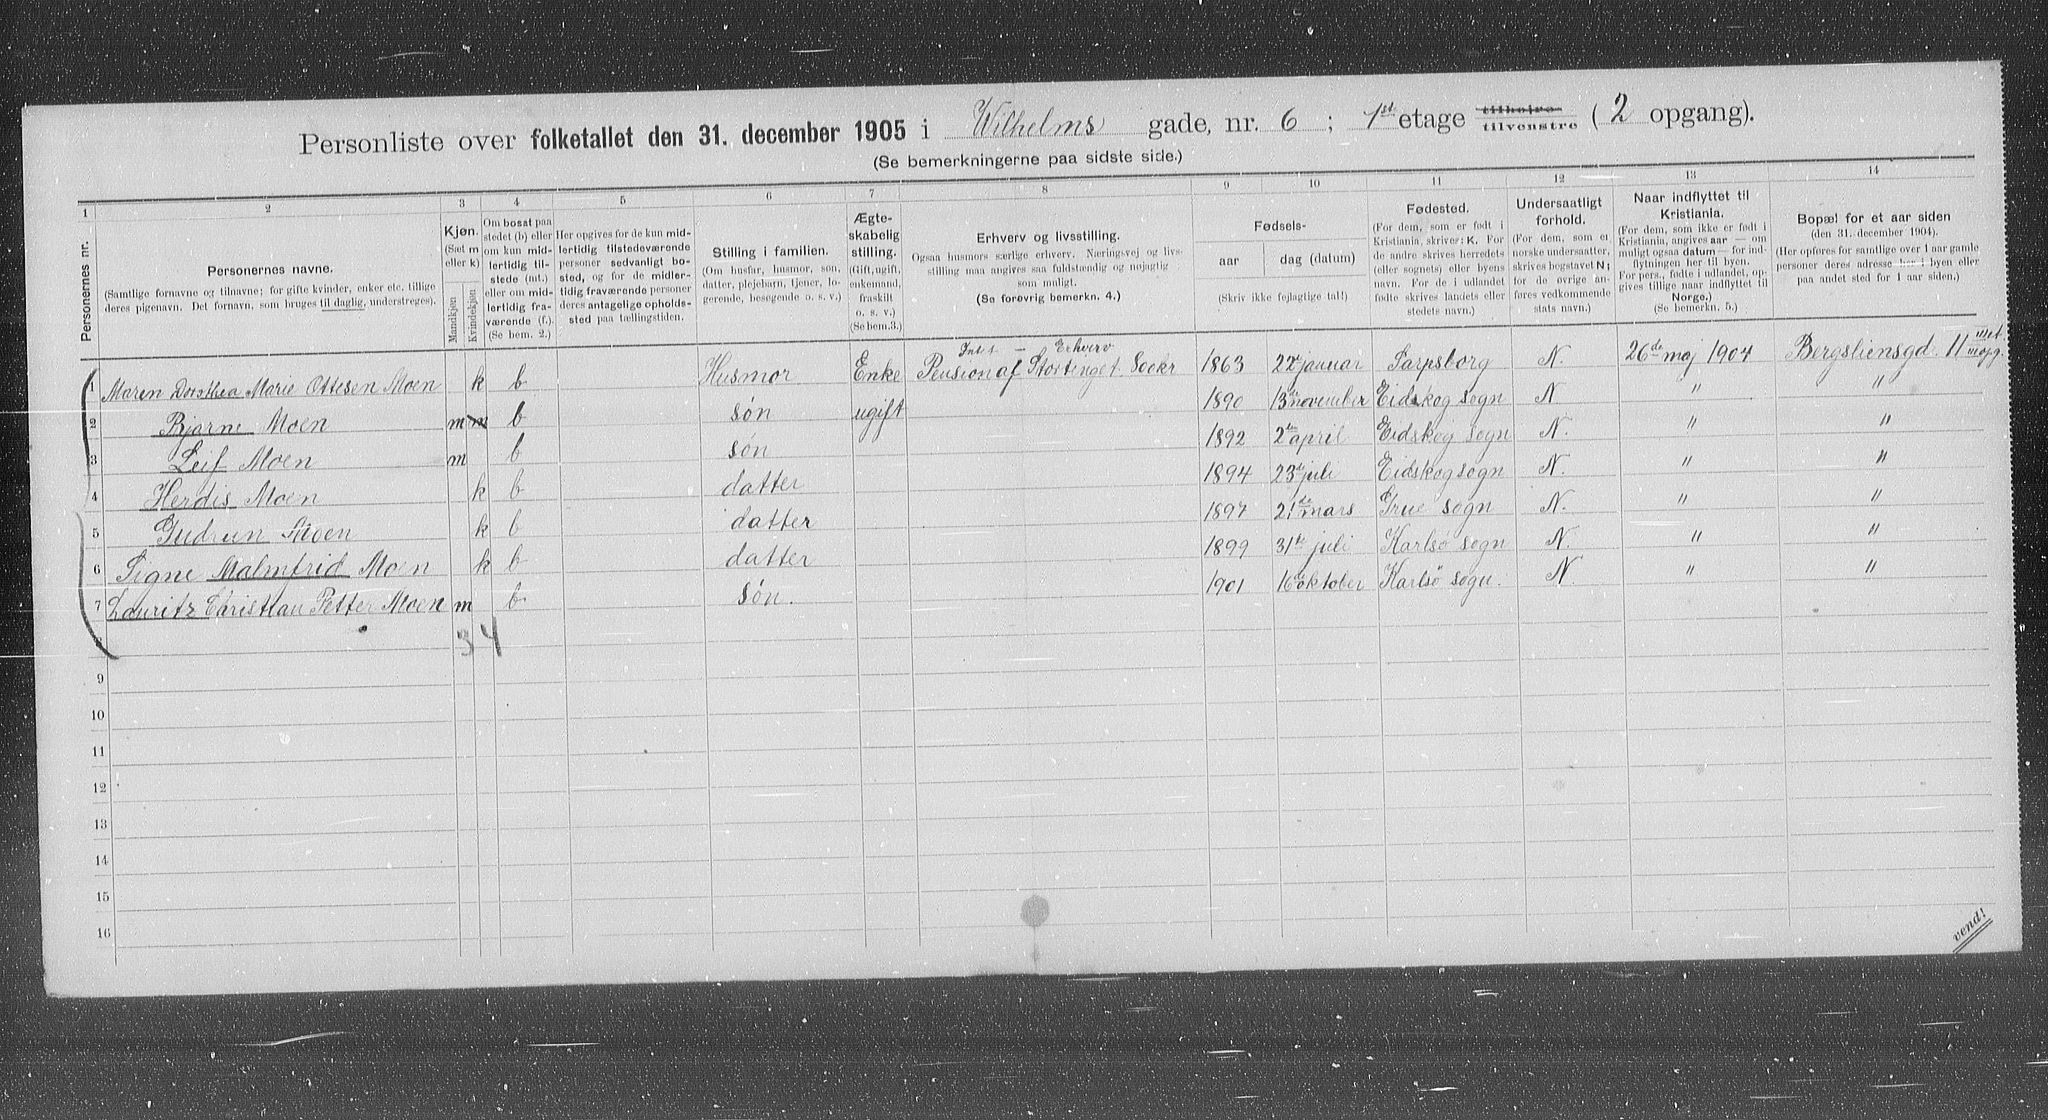 Personliste over folketallet den 31. december 1905 i Wilhelms gade, nr. 6 ; 1st etage tilhøjre tilvenstre ( 2 opgang).
(Se bemerkningerne paa sidste side.)
1 2 3 4 5 6 7 8 9 10 11 12 13 14
Personernes nr.
Personernes navne.
(Samtlige fornavne og tilnavne; for gifte kvinder, enker etc. tillige
deres pigenavn. Det fornavn, som bruges til daglig, understreges).
Kjøn.
(Sæt m
eller k)
Mandkjøn
Kvindekjøn
Om bosat paa
stedet (b) eller
om kun mid-
lertidig til-
stede (mt.)
eller om mid-
lertidig fra-
værende (f.).
(Se bem. 2.)
Her opgives for de kun mid-
lertidig tilstedeværende
personer sedvanlig bo-
sted, og for de midler-
tidig fraværende personer
deres antagelige opholds-
sted paa tællingstiden.
Stilling i familien.
(Om husfar, husmor, søn,
datter, plejebarn, tjener, lo-
gerende, besøgende o. s. v.)
Ægte-
skabelig
stilling.
(Gift, ugift,
enkemand,
fraskilt
o. s. v.)
(Se bem.3.)
Erhverv og livsstilling.
Ogsaa husmors særlige erhverv. Næringsvej og livs-
stilling maa angives saa fuldstændig og nøjagtig
som muligt.
(Se forøvrig bemerkn. 4.)
Fødsels-
aar
dag (datum)
(Skriv ikke fejlagtige tal!)
Fødested.
(For dem, som er født i
Kristiania, skriver: K. For
de andre skrives herredets
(eller sognets) eller byens
navn. For de i udlandet
fødte skrives landets eller
stedets navn.)
Undersaatligt
forhold.
(For dem, som er
norske undersaatter,
skrives bogstavet N;
for de øvrige an-
føres vedkommende
stats navn.)
Naar indflyttet til
Kristiania.
(For dem, som ikke er født i
Kristiania, angives aar — om
muligt ogsaa datum — for ind-
flytningen her til byen.
For pers., fødte i udlandet, op-
gives tillige naar indflyttet til
Norge.)
(Se bemerkn. 5.)
Bopæl for et aar siden
(den 31. december 1904).
(Her opføres for samtlige over 1 aar gamle
personer deres adresse her i byen eller
paa andet sted for 1 aar siden.)
Intet — Erhverv
1 Maren Dorothea Marie Ottesen Moen k b Husmor Enke Pension af Stortinget 1863 22de januar Sarpsborg N. 26de maj 1904 Bergsliensgd. 11
2 Bjarne Moen m m b søn ugift 1890 13de november Eidskog sogn N. " "
3 Leif Moen m b søn 1892 2de april Eidskog sogn N. " "
4 Herdis Moen k b datter 1894 23de juli Eidskog sogn N. " "
5 Gudrun Moen k b datter 1897 21de mars Grue sogn N. " "
6 Signe Malmfrid Moen k b datter 1899 31te juli Karlsø sogn N " "
7 Lauritz Christian Petter Moen m b søn. 1901 16de oktober Karlsø sogn. N. " "
8 3 4
9
10
11
12
13
14
15
16
vend!